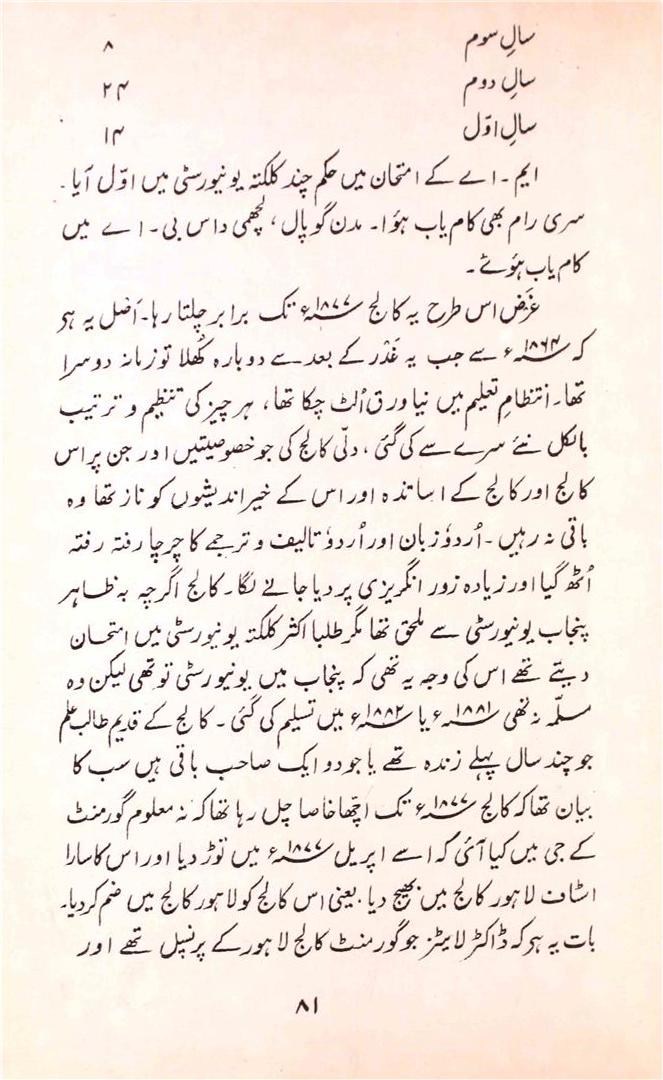 سالِ سوم ۸
سالِ دوم ۲۴
سالِ اوّل ۱۴
ایم۔ اے کے امتحان میں حکم چند کلکتہ یونیورسٹی میں اوّل آیا۔
سری رام بھی کام یاب ہؤا۔ مدن گوپال، لچھمی داس بی۔ اے میں
کام یاب ہوئے۔
غرَض اس طرح یہ کالج ۱۸۷۷ء تک برابر چلتا رہا۔ اَصل یہ ہی
کہ ۱۸۶۴ء سے جب یہ غَدْر کے بعد سے دوبارہ کُھلا تو زمانہ دوسرا
تھا۔ انتظامِ تعلیم میں نیا ورق اُلٹ چکا تھا، ہر چیز کی تنظیم و ترتیب
بالکل نئے سرے سے کی گئی، دلّی کالج کی جو خصوصیتیں اور جن پر اس
کالج اور کالج کے اساتذہ اور اس کے خیر اندیشوں کو ناز تھا وہ
باقی نہ رہیں۔ اُردوٗ زبان اور اُردوٗ تالیف و ترجمے کا چرچا رفتہ رفتہ
اُٹھ گیا اور زیادہ زور انگریزی پر دیا جانے لگا۔ کالج اگرچہ بہ ظاہر
پنجاب یونیورسٹی سے ملحق تھا مگر طلبا اکثر کلکتہ یونیورسٹی میں امتحان
دیتے تھے اس کی وجہ یہ تھی کہ پنجاب میں یونیورسٹی تو تھی لیکن وہ
مسلّمہ نہ تھی ۱۸۸۱ء یا ۱۸۸۲ء میں تسلیم کی گئی۔ کالج کے قدیم طالب علم
جو چند سال پہلے زندہ تھے یا جو دو ایک صاحب باقی ہیں سب کا
بیان تھا کہ کالج ۱۸۷۷ء تک اچھّا خاصا چل رہا تھا کہ نہ معلوم گورمنٹ
کے جی میں کیا آئی کہ اسے اپریل ۱۸۷۷ء میں توڑ دیا اور اس کا سارا
اسٹاف لاہور کالج میں بھیج دیا۔ یعنی اس کالج کو لاہور کالج میں ضم کر دیا۔
بات یہ ہی کہ ڈاکٹر لائٹنز جو گورمنٹ کالج لاہور کے پرنسپل تھے اور
۸۱